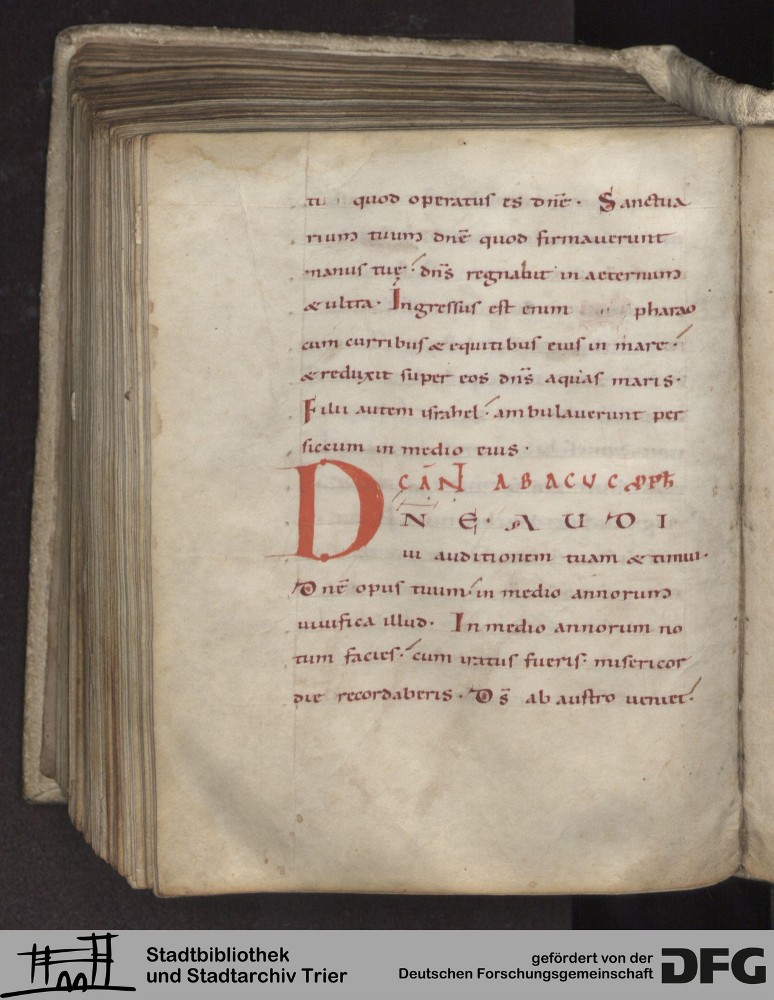 tu quod operatus es dnē. Sanctua
rium tuum dnē quod firmauerunt
manus tuę. dn̄s regnabit in aeternum
& ultra. Ingressus est enim pharao
cum curribus & equitibus eius in mare.
& reduxit super eos dn̄s aquas maris.
Filii autem israhel. ambulauerunt per
siccum in medio eius.
CAN̄ ABACUC PPH
DNE. AUDI
ui auditionem tuam & timui.
Dnē opus tuum. in medio annorum
uiuifica illud. In medio annorum no
tum facies. cum iratus fueris. misericor
die recordaberis. Ds̄ ab austro ueniet.
Stadtbibliothek
und Stadtarchiv Trier
gefördert von der
Deutschen Forschungsgemeinschaft
DFG